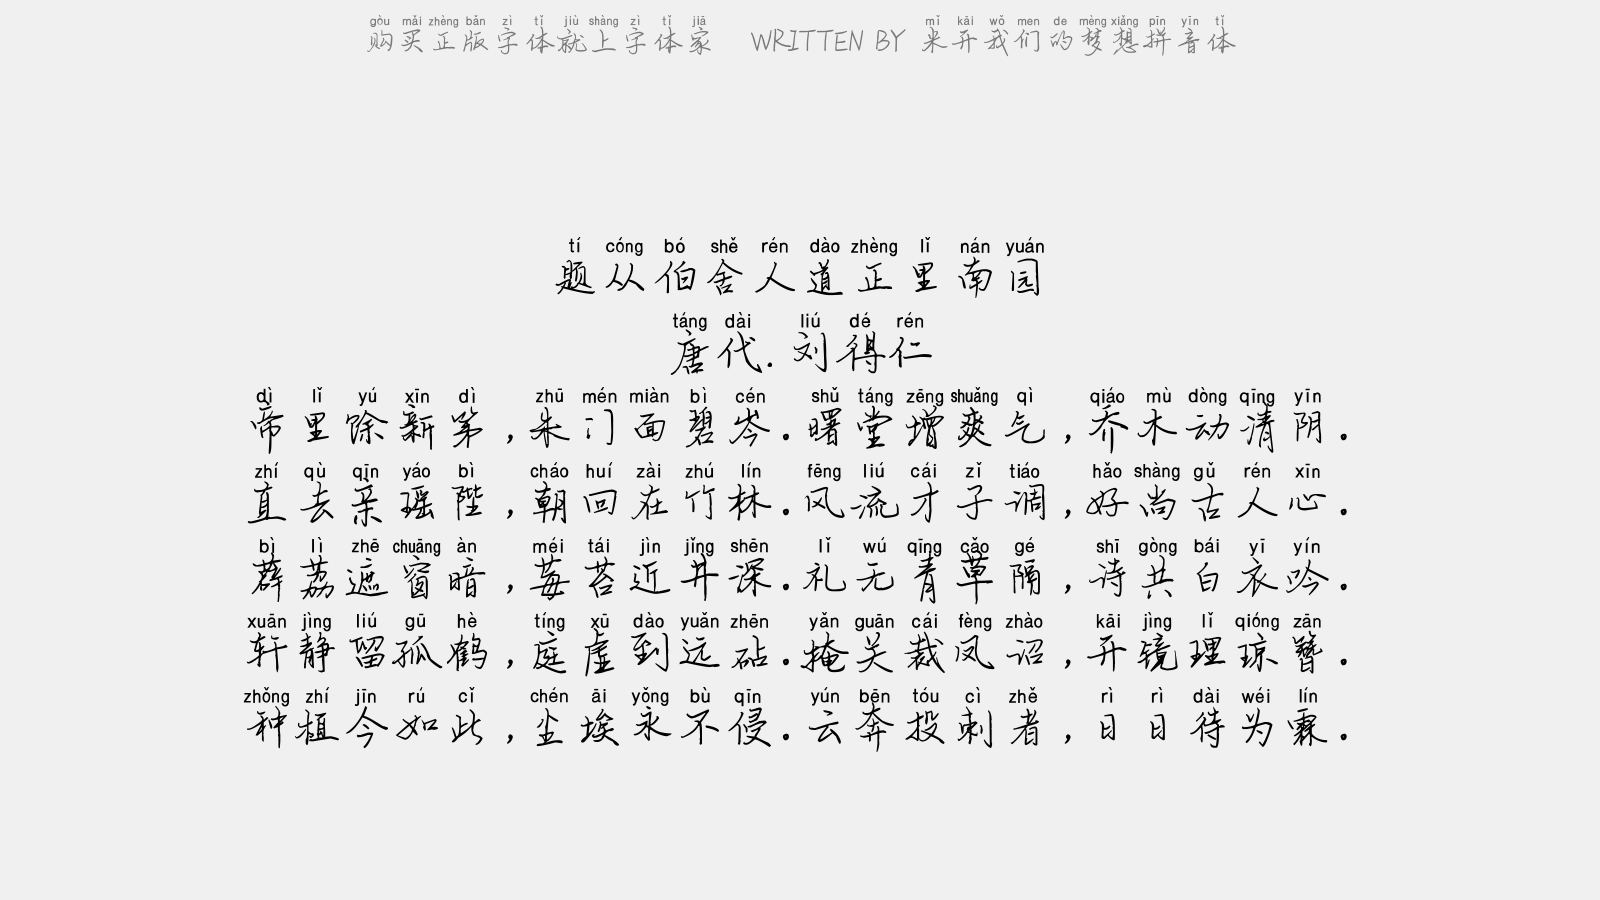 gòu mǎi zhèng bǎn zì tǐ jiù shàng zì tǐ jiā mǐ kāi wǒ men de mèng xiǎng pīn yīn tǐ
购买正版字体就上字体家 WRITTEN BY 米开我们的梦想拼音体
tí cóng bó shě rén dào zhèng lǐ nán yuán
题从伯舍人道正里南园
táng dài liú dé rén
唐代.刘得仁
dì lǐ yú xīn dì zhū mén miàn bì cén shǔ táng zēng shuǎng qì qiáo mù dòng qīng yīn
帝里馀新第,朱门面碧岑.曙堂增爽气,乔木动清阴.
zhí qù qīn yáo bì cháo huí zài zhú lín fēng liú cái zǐ tiáo hǎo shàng gǔ rén xīn
直去亲瑶陛,朝回在竹林.风流才子调,好尚古人心.
bì lì zhē chuāng àn méi tái jìn jǐng shēn lǐ wú qīng cǎo gé shī gòng bái yī yín
薜荔遮窗暗,莓苔近井深.礼无青草隔,诗共白衣吟.
xuān jìng liú gū hè tíng xū dào yuǎn zhēn yǎn guān cái fèng zhào kāi jìng lǐ qióng zān
轩静留孤鹤,庭虚到远砧.掩关裁凤诏,开镜理琼簪.
zhǒng zhí jīn rú cǐ chén āi yǒng bù qīn yún bēn tóu cì zhě rì rì dài wéi lín
种植今如此,尘埃永不侵.云奔投刺者,日日待为霖.